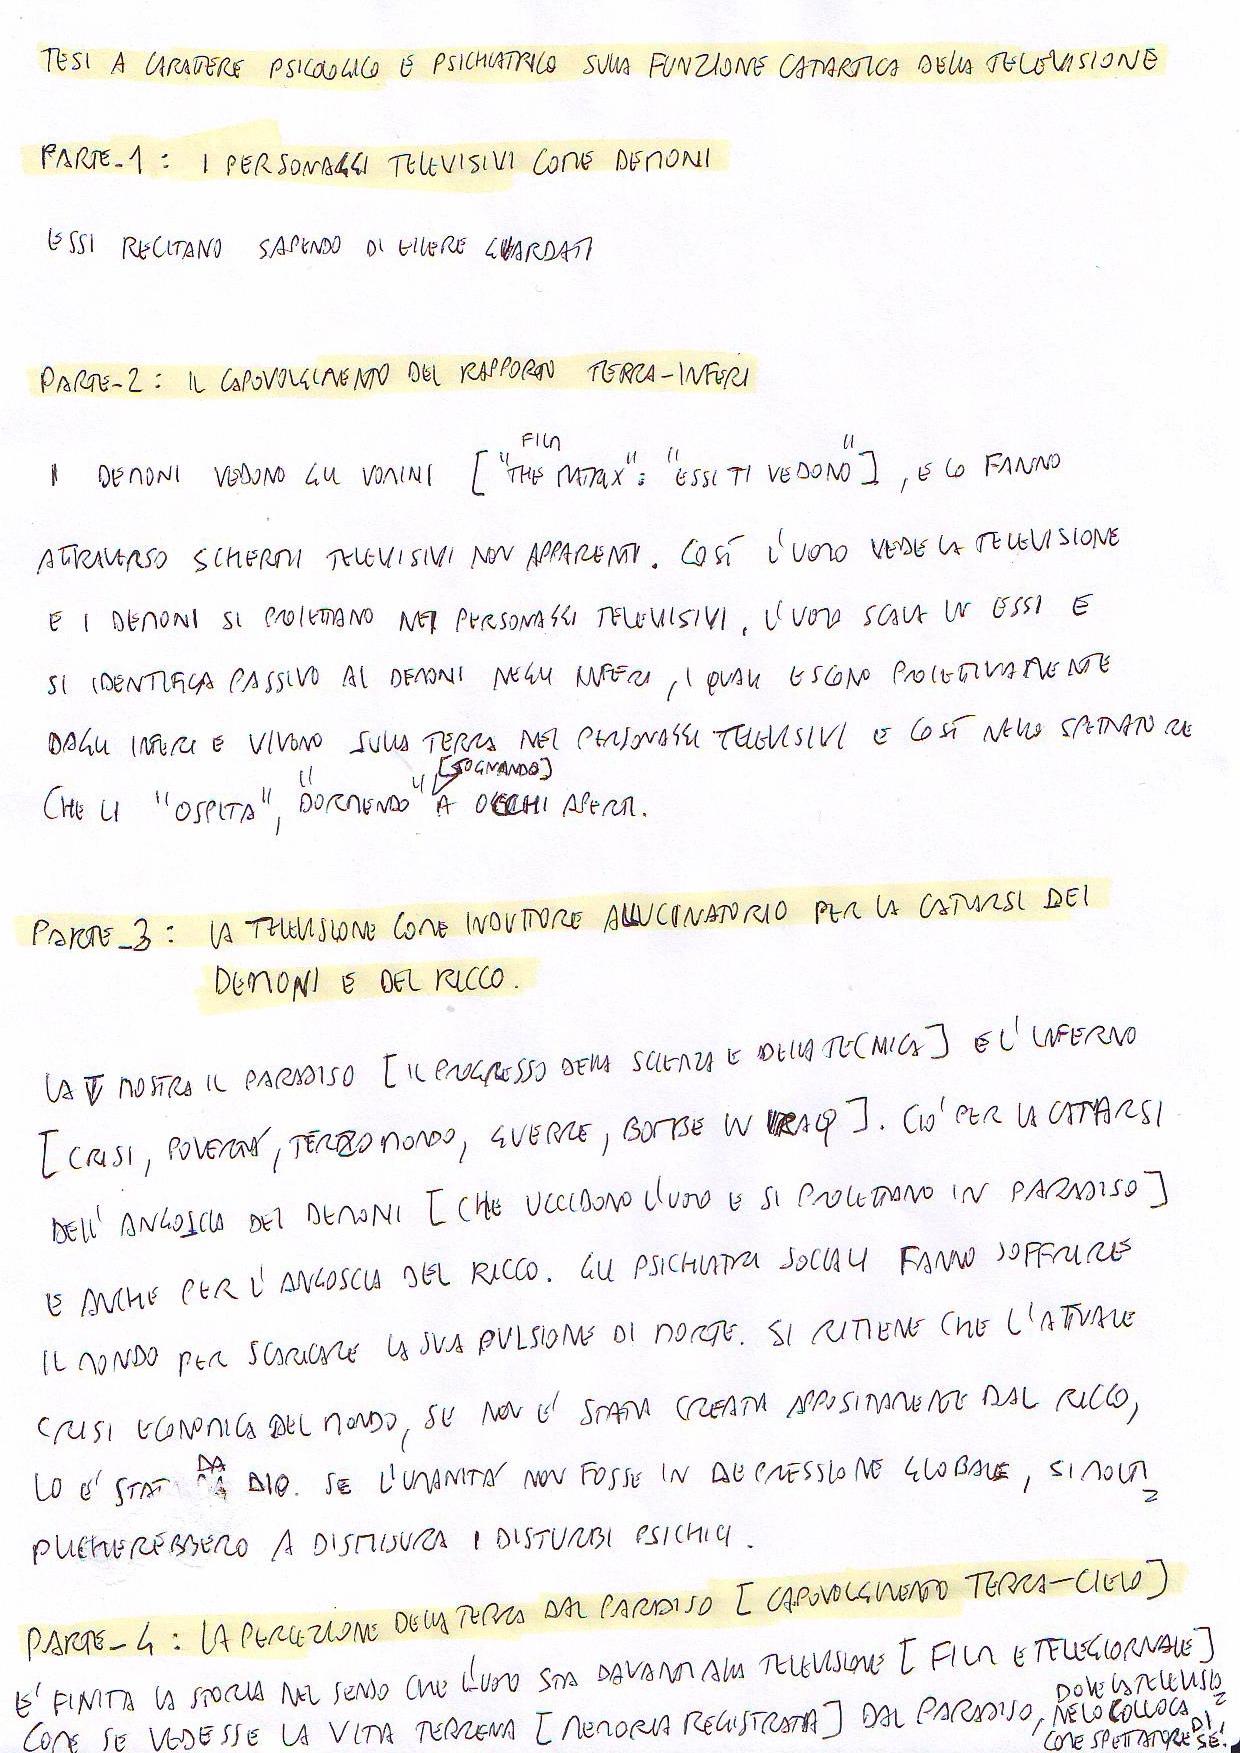 TESI A CARATTERE PSICOLOGICO E PSICHIATRICO SULLA FUNZIONE CATARTICA DELLA TELEVISIONE
PARTE_1 : I PERSONAGGI TELEVISIVI COME DEMONI
ESSI RECITANO SAPENDO DI ESSERE GUARDATI
PARTE_2 : IL CAPOVOLGIMENTO DEL RAPPORTO TERRA-INFERI
FILM
I DEMONI VEDONO GLI UOMINI ["THE MATRIX": "ESSI TI VEDONO"], E LO FANNO
ATTRAVERSO SCHERMI TELEVISIVI NON APPARENTI. COSÌ L'UOMO VEDE LA TELEVISIONE
E I DEMONI SI PROIETTANO NEI PERSONAGGI TELEVISIVI. L'UOMO SCAVA IN ESSI E
SI IDENTIFICA PASSIVO AI DEMONI NEGLI INFERI, I QUALI ESCONO PROIETTIVAMENTE
DAGLI INFERI E VIVONO SULLA TERRA NEI PERSONAGGI TELEVISIVI E COSÌ NELLO SPETTATORE
[SOGNANDO]
CHE LI "OSPITA", "DORMENDO" A OCCHI APERTI.
PARTE_3 : LA TELEVISIONE COME INDUTTORE ALLUCINATORIO PER LA CATARSI DEI
DEMONI E DEL RICCO.
LA TV MOSTRA IL PARADISO [IL PROGRESSO DELLA SCIENZA E DELLA TECNICA] E L'INFERNO
[CRISI, POVERTÀ, TERZO MONDO, GUERRE, BOMBE IN IRAQ]. CIO' PER LA CATARSI
DELL'ANGOSCIA DEI DEMONI [CHE UCCIDONO L'UOMO E SI PROIETTANO IN PARADISO]
E ANCHE PER L'ANGOSCIA DEL RICCO. GLI PSICHIATRI SOCIALI FANNO SOFFRIRE
IL MONDO PER SCARICARE LA SUA PULSIONE DI MORTE. SI RITIENE CHE L'ATTUALE
CRISI ECONOMICA DEL MONDO, SE NON E' STATA CREATA APPOSITAMENTE DAL RICCO,
LO E' STAT DA DIO. SE L'UMANITA' NON FOSSE IN DEPRESSIONE GLOBALE, SI MOLTI=
PLICHEREBBERO A DISMISURA I DISTURBI PSICHICI.
PARTE_4 : LA PERCEZIONE DELLA TERRA DAL PARADISO [CAPOVOLGIMENTO TERRA-CIELO]
E' FINITA LA STORIA NEL SENSO CHE L'UOMO STA DAVANTI ALLA TELEVISIONE [FILM E TELEGIORNALE]
COME SE VEDESSE LA VITA TERRENA [MEMORIA REGISTRATA] DAL PARADISO,
DOVE LA TELEVISIO=
NE LO COLLOCA
COME SPETTATORE DI SE'.